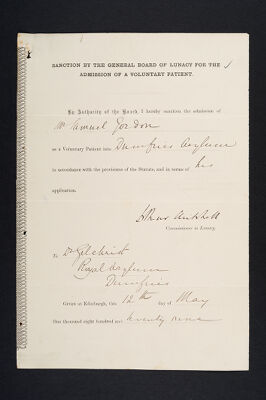 SANCTION BY THE GENERAL BOARD OF LUNACY FOR THE
ADMISSION OF A VOLUNTARY PATIENT.
By Authority of the Board, I hereby sanction the admission of
Mr Samuel Gordon
as a Voluntary Patient into Dumfries Asylum
in accordance with the provisions of the Statute, and in terms of his
application.
Arthur Mitchell
Commissioner in Lunacy.
To Dr Gilchrist
Royal Asylum
Dumfries
Given at Edinburgh, this 12th day of May
One thousand eight hundred and
seventy nine